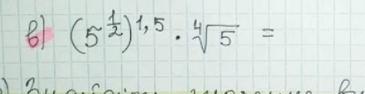 в) (5^{\frac{1}{2}})^{1,5} · \sqrt[4]{5} =